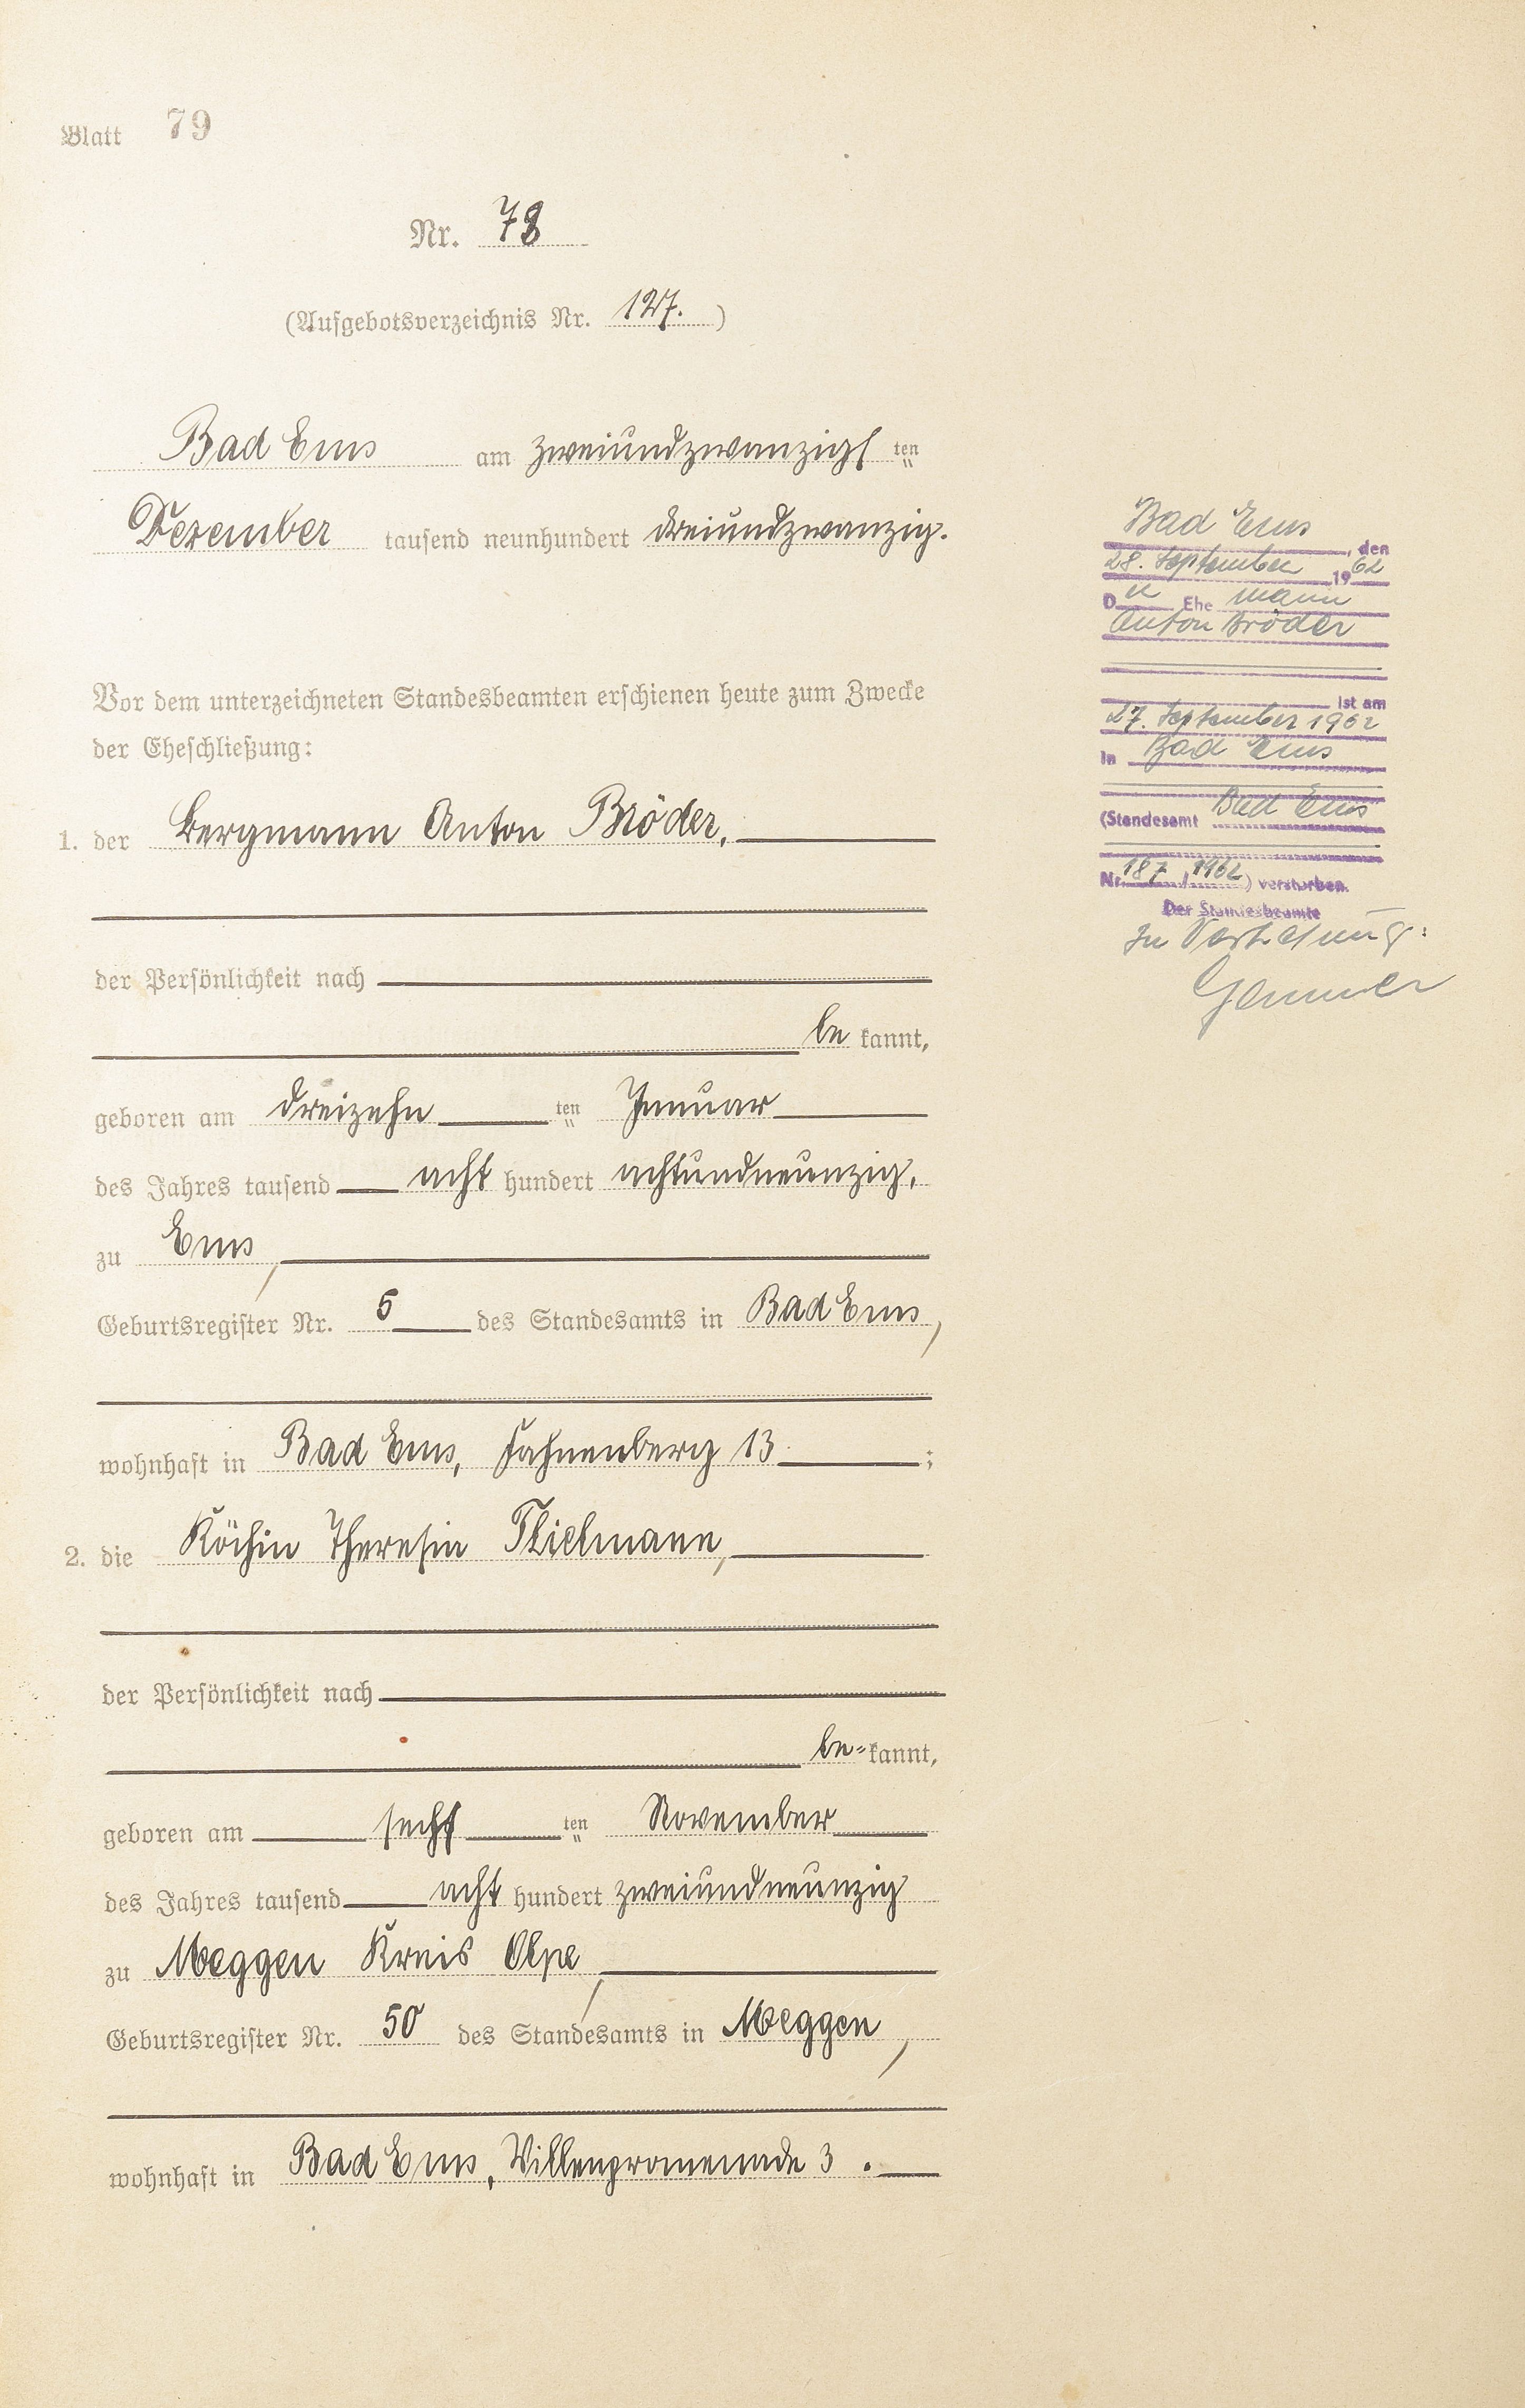 Blatt 79
Nr. 78
(Aufgebotsverzeichnis Nr. 127.)
Bad Ems am zweiundzwanzigsten
Dezember tausend neunhundert dreiundzwanzig.
Vor dem unterzeichneten Standesbeamten erschienen heute zum Zwecke
der Eheschließung:
1. der Bergmann Anton Bröder,
der Persönlichkeit nach
be kannt,
geboren am dreizehn ten Januar
des Jahres tausend acht hundert achtundneunzig,
zu Ems,
Geburtsregister Nr. 5 des Standesamts in Bad Ems,
wohnhaft in Bad Ems, Fahnenberg 13 ;
2. die Köchin Theresia Thielmann,
der Persönlichkeit nach
be=kannt,
geboren am sechs ten November
des Jahres tausend acht hundert zweiundneunzig
zu Meggen Kreis Olpe,
Geburtsregister Nr. 50 des Standesamts in Meggen,
wohnhaft in Bad Ems, Villenpromenade 3.
Bad Ems, den
28. September 1962
Der Ehemann
Anton Bröder
ist am
27. September 1962
in Bad Ems
(Standesamt Bad Ems
Nr. 187/1962) verstorben.
Der Standesbeamte
In Vertretung: